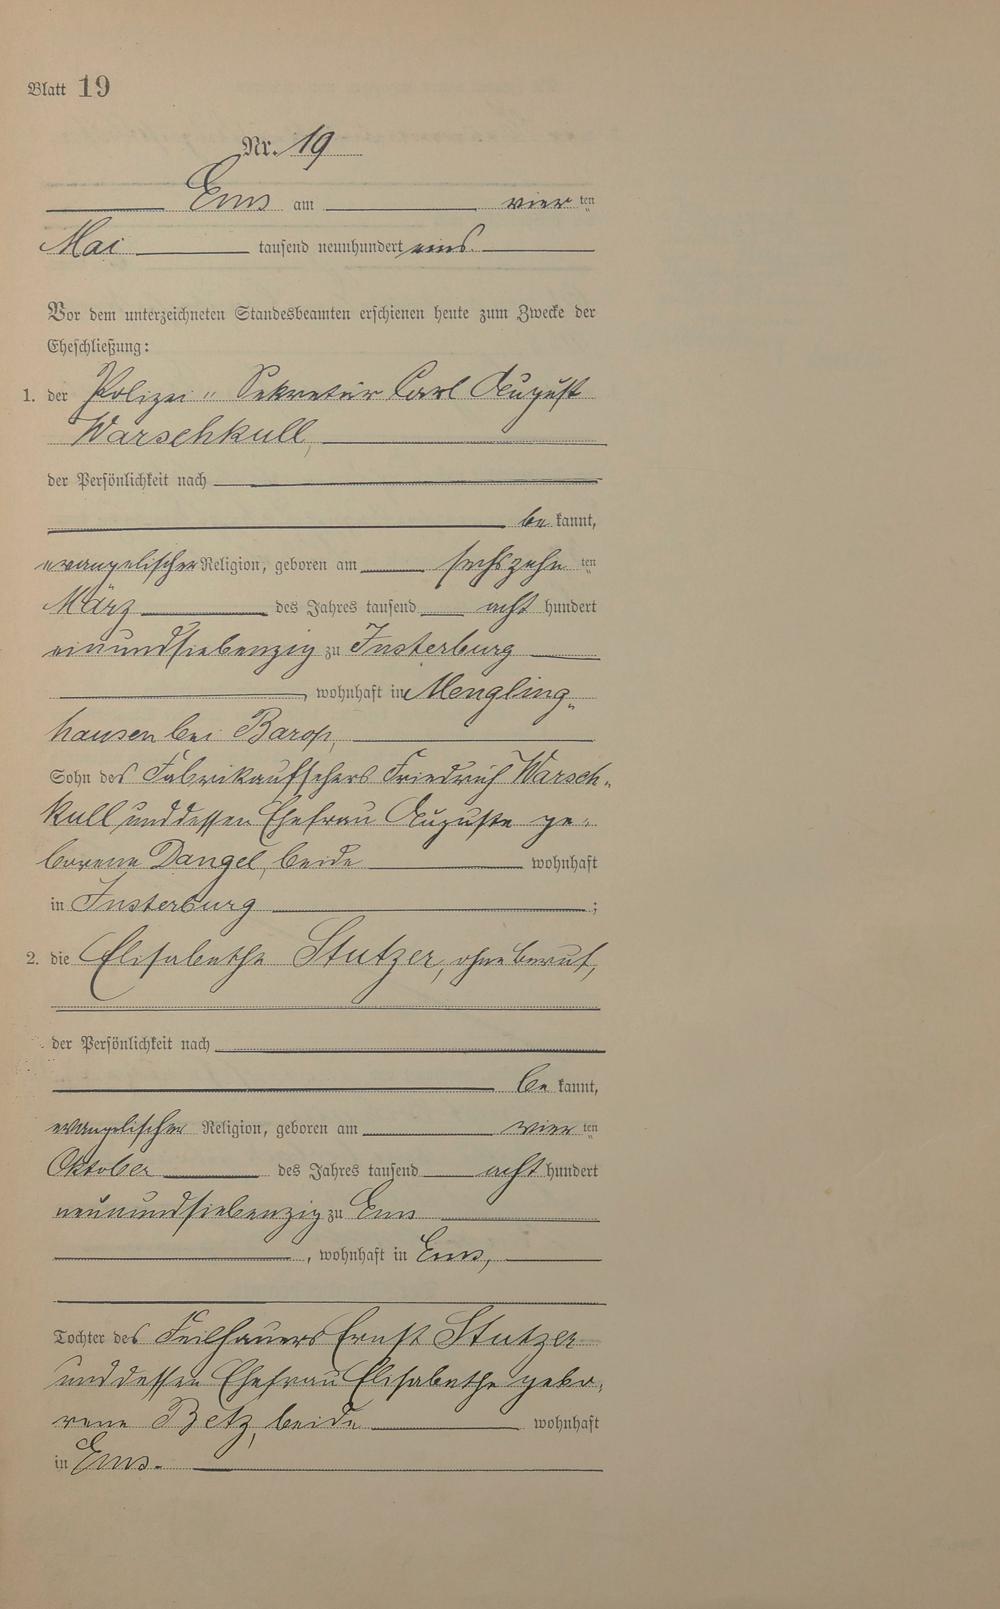 Blatt 19
Nr. 19
Ems am vier ten
Mai tausend neunhundert eins.
Vor dem unterzeichneten Standesbeamten erschienen heute zum Zwecke der
Eheschließung:
1. der Polizei-Sekretär Carl August
Warschkull,
der Persönlichkeit nach
be kannt,
evangelischer Religion, geboren am sechszehn ten
März des Jahres tausend acht hundert
einundsiebenzig zu Insterburg
, wohnhaft in Mengling-
hausen bei Barop,
Sohn des Fabrikaufsehers Friedrich Warsch-
kull und dessen Ehefrau Auguste ge-
borene Dangel, beide wohnhaft
in Insterburg ;
2. die Elisabethe Stutzer, ohne Beruf,
der Persönlichkeit nach
be kannt,
evangelischer Religion, geboren am vier ten
Oktober des Jahres tausend acht hundert
neunundsiebenzig zu Ems
, wohnhaft in Ems,
Tochter des Feilhauers Ernst Stutzer
und dessen Ehefrau Elisabethe gebo-
rene Betz, beide wohnhaft
in Ems.